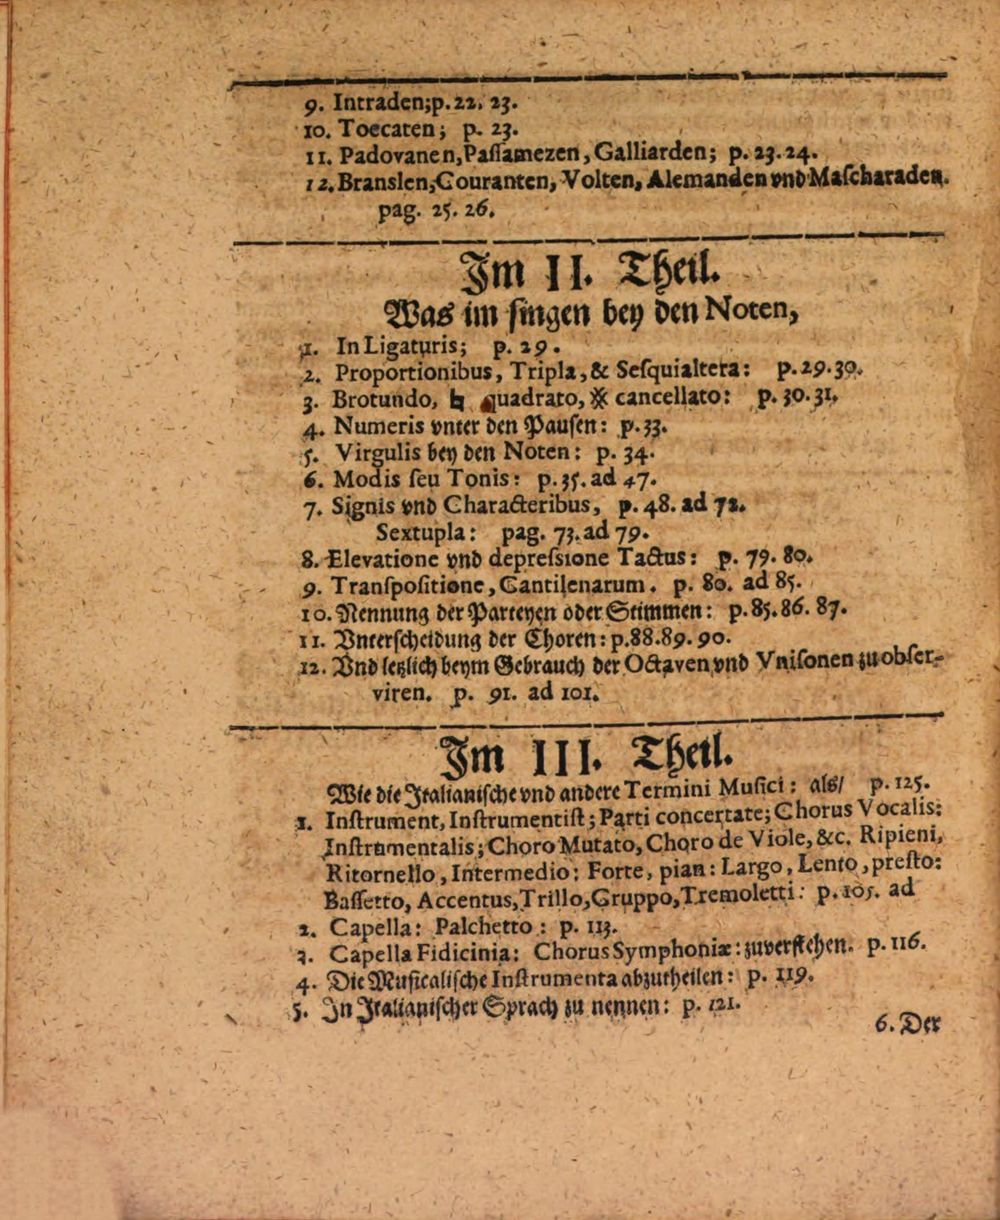 9. Intraden;p.22. 23.
10. Toccaten; p. 23.
11. Padovanen,Paſſamezen,Galliarden; p. 23.24.
12.Branslen,Couranten, Volten, Alemanden vnd Maſcharaden.
pag. 25. 26.
Im II. Theil.
Was im ſingen bey den Noten,
1. In Ligaturis; p. 29.
2. Proportionibus, Tripla,& Seſquialtera: p.29.30.
3. Brotundo, ♮ quadrato, ※ cancellato: p. 30.31.
4. Numeris vnter den Pauſen: p.33.
5. Virgulis bey den Noten: p. 34.
6. Modis ſeu Tonis: p.35. ad 47.
7. Signis vnd Characteribus, p. 48. ad 72.
Sextupla: pag. 73. ad 79.
8. Elevatione vnd depreſsione Tactus: p. 79. 80.
9. Tranſpoſitione, Cantilenarum. p. 80. ad 85.
10. Nennung der Parteyen oder Stimmen: p.85.86. 87.
11. Vnterſcheidung der Choren: p.88.89.90.
12. Vnd letzlich beym Gebrauch der Octaven vnd Vniſonen zu obſer-
viren. p. 91. ad 101.
Im III. Theil.
Wie die Italianiſche vnd andere Termini Muſici: als/ p.125.
1. Inſtrument, Inſtrumentiſt; Parti concertate; Chorus Vocalis:
Inſtrumentalis; Choro Mutato, Choro de Viole, &c. Ripieni,
Ritornello, Intermedio: Forte, pian: Largo, Lento, preſto:
Baſſetto, Accentus,Trillo,Gruppo,Tremoletti: p.105. ad
2. Capella: Palchetto: p. 113.
3. Capella Fidicinia: Chorus Symphoniæ: zuverſtehen. p. 116.
4. Die Muſicaliſche Inſtrumenta abzutheilen: p. 119.
5. In Italianiſcher Sprach zu nennen: p. 121.
6. Der